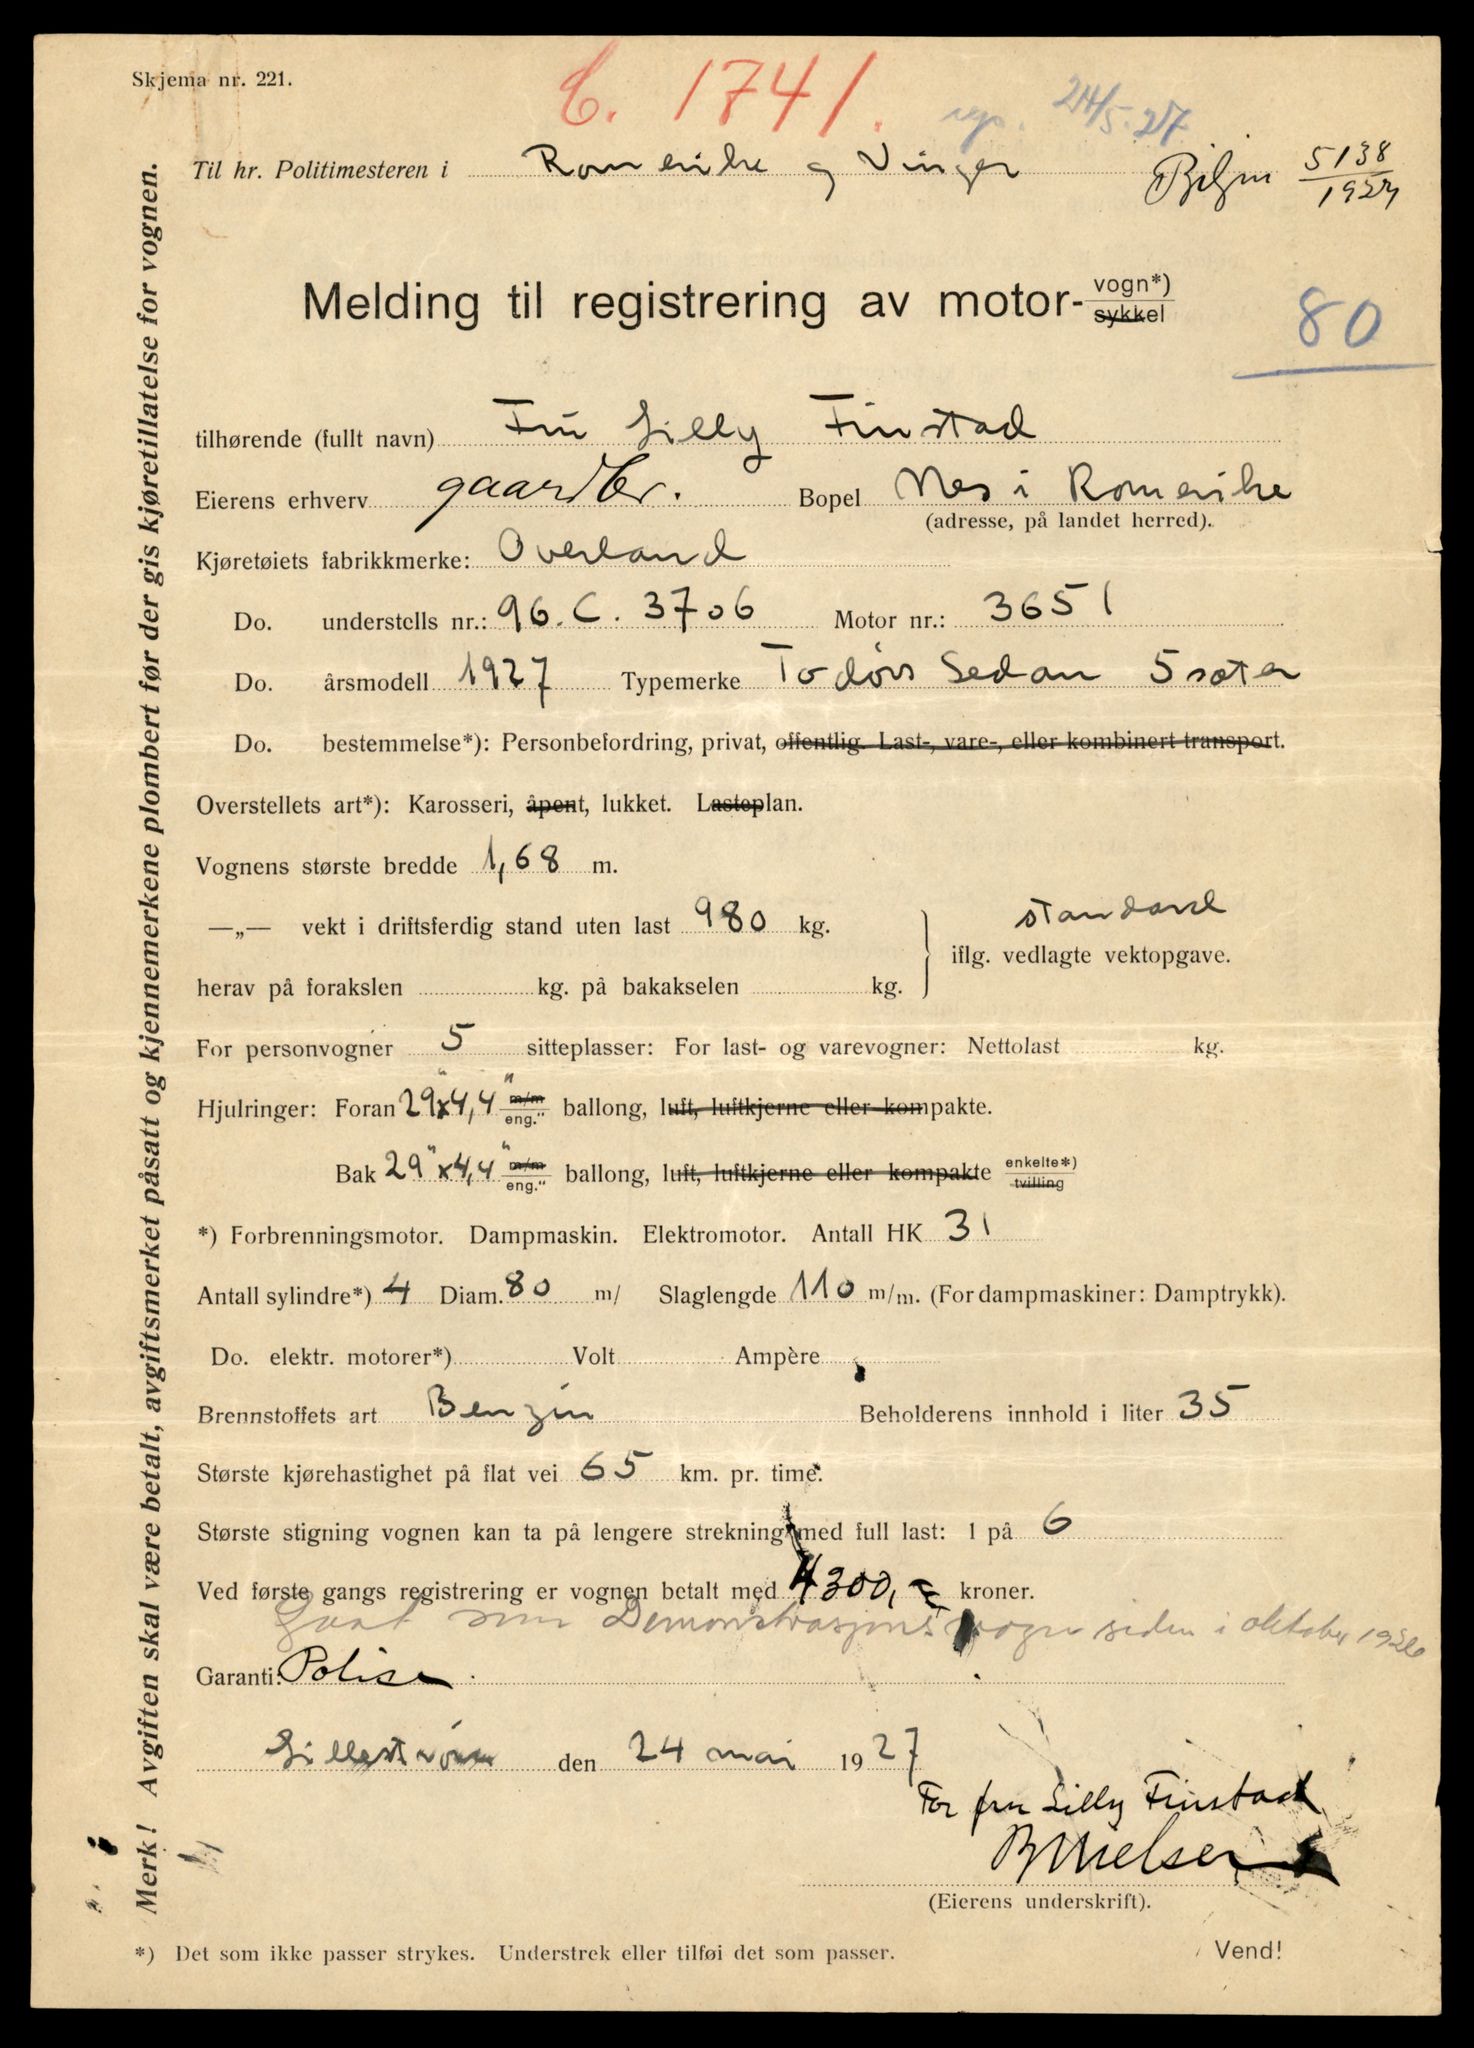 Skjema nr. 221.
C. 1741.
reg. 24/5.27
Til hr. Politimesteren i Romerike og Vinger
5138/1927
Melding til registrering av motor-vogn*) sykkel
80
tilhørende (fullt navn) Fru Lilly Finstad
Eierens erhverv gaardbr. Bopel Nes i Romerike
(adresse, på landet herred).
Kjøretøiets fabrikkmerke: Overland
Do. understells nr.: 96. C. 3706 Motor nr.: 3651
Do. årsmodell 1927 Typemerke Todørs Sedan 5 seter
Do. bestemmelse*): Personbefordring, privat, offentlig. Last-, vare-, eller kombinert transport.
Overstellets art*): Karosseri, åpent, lukket. Lasteplan.
Vognens største bredde 1,68 m.
—„— vekt i driftsferdig stand uten last 980 kg. standard
iflg. vedlagte vektopgave.
herav på forakslen kg. på bakakselen kg.
For personvogner 5 sitteplasser: For last- og varevogner: Nettolast kg.
Hjulringer: Foran 29"x4,4" m/m eng." ballong, luft, luftkjerne eller kompakte.
Bak 29"x4,4" m/m eng." ballong, luft, luftkjerne eller kompakte enkelte*) tvilling
*) Forbrenningsmotor. Dampmaskin. Elektromotor. Antall HK 31
Antall sylindre*) 4 Diam. 80 m/ Slaglengde 110 m/m. (For dampmaskiner: Damptrykk).
Do. elektr. motorer*) Volt Ampère
Brennstoffets art Benzin Beholderens innhold i liter 35
Største kjørehastighet på flat vei 65 km. pr. time.
Største stigning vognen kan ta på lengere strekning med full last: 1 på 6
Ved første gangs registrering er vognen betalt med 4300,- kroner.
Gaat som Demonstrasjonsvogn siden i oktober 1926
Garanti: Polise.
Lillestrøm den 24 mai 1927
For fru Lilly Finstad
B Nielsen
(Eierens underskrift).
*) Det som ikke passer strykes. Understrek eller tilføi det som passer.
Vend!
Merk! Avgiften skal være betalt, avgiftsmerket påsatt og kjennemerkene plombert før der gis kjøretillatelse for vognen.